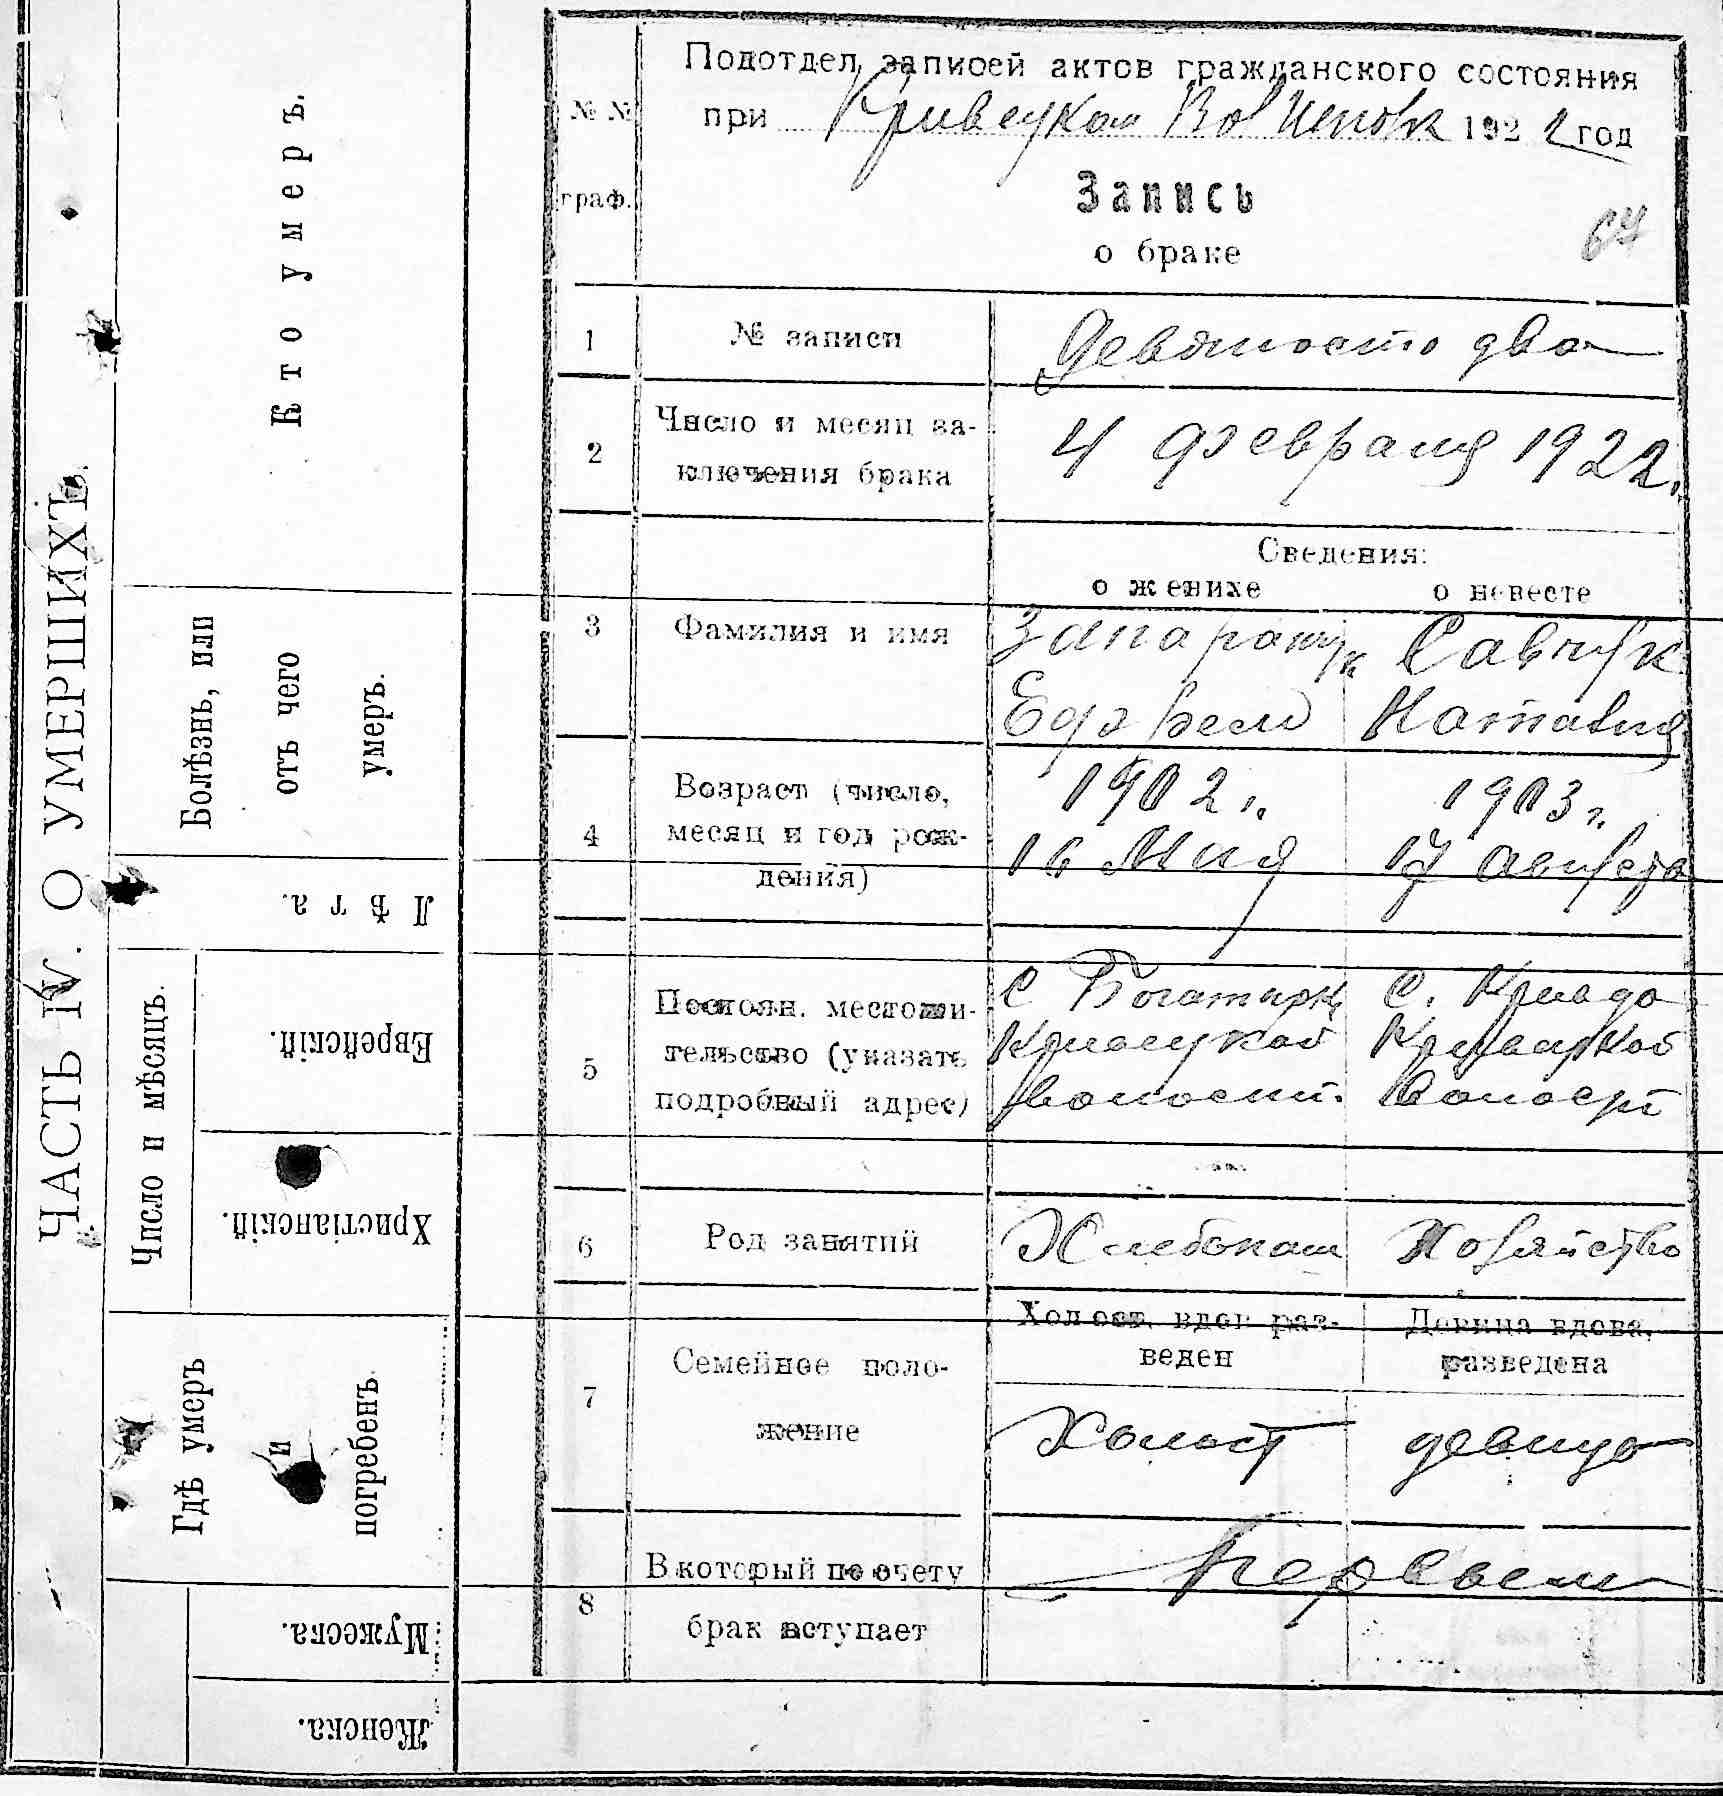 ЧАСТЬ IV. О УМЕРШИХЪ.
Кто умеръ.
Болѣзнь, или
отъ чего
умеръ.
Лѣта.
Число и мѣсяцъ.
Еврейскій.
Христіанскій.
Гдѣ умеръ
и
погребенъ.
Мужеска.
Женска.
№ №
граф.
Подотдел записей актов гражданского состояния
при Кривецком Вол 1922 год
Запись
о браке
64
1 № записи Девяносто два
2 Число и месяц за-
ключения брака
4 февраля 1922.
Сведения:
о женихе о невесте
3 Фамилия и имя Савчук
Наталия
4 Возраст (число,
месяц и год рож-
дения)
1902 г. 1903 г.
16 Мая 17 Августа
5 Постоян. местожи-
тельство (указать
подробный адрес)
С С. Кривда
Кривецкой
волости. волост
6 Род занятий Хозяйство
7 Семейное поло-
жение
Холост, вдов раз-
веден
Девица вдова,
разведена
Холост девица
8 В который по счету
брак вступает
Первым